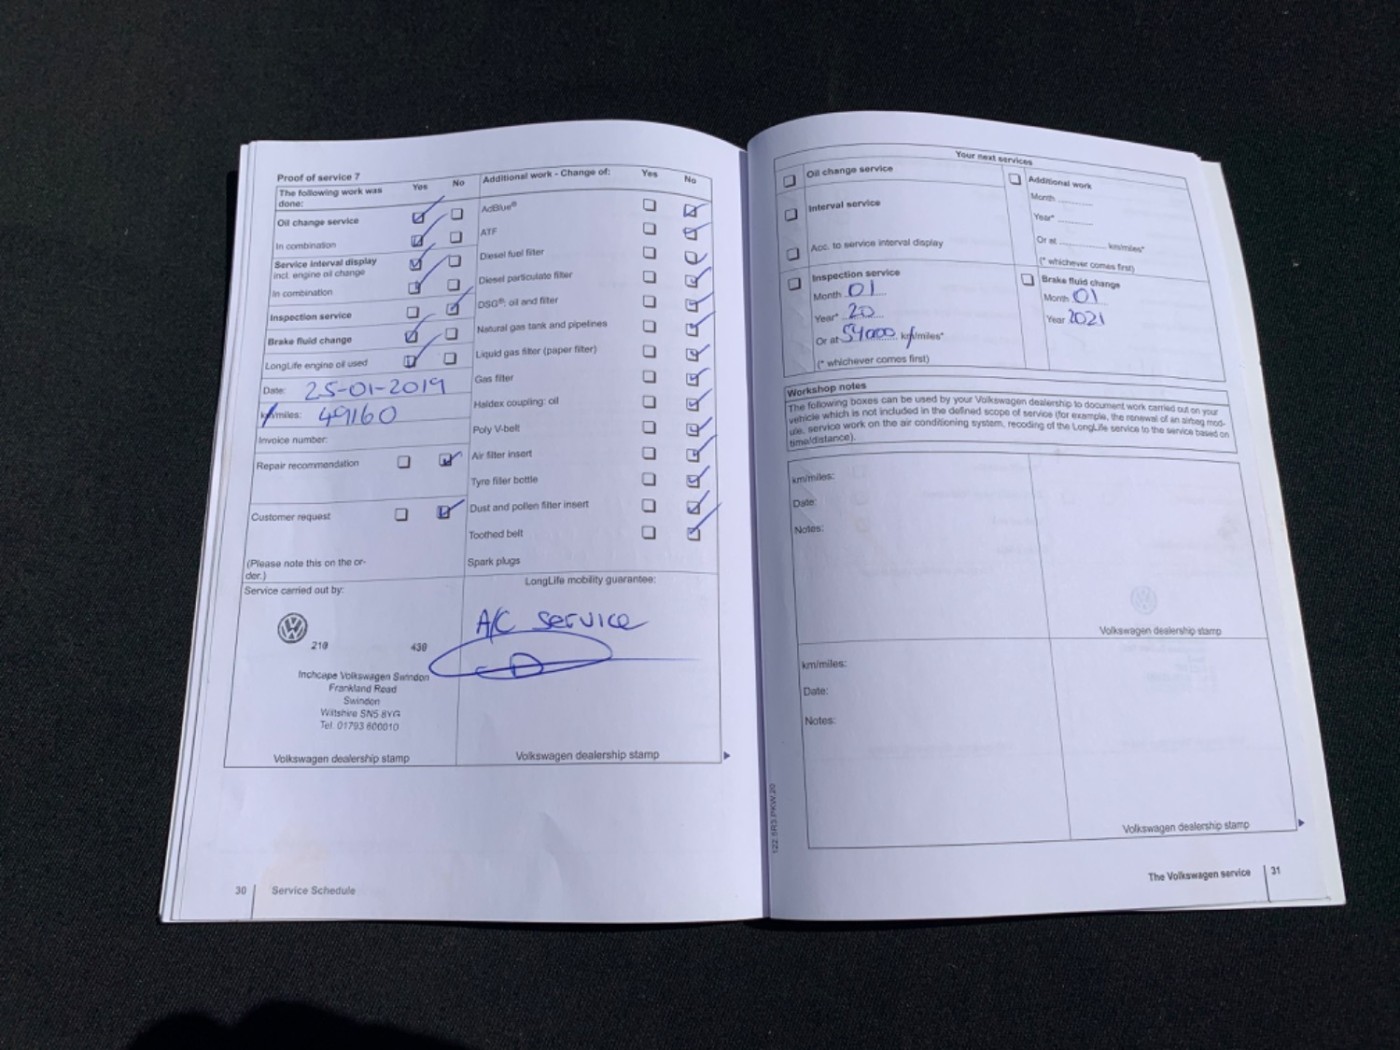 Proof of service 7
The following work was done: Yes No
Oil change service
In combination
Service interval display
incl. engine oil change
In combination
Inspection service
Brake fluid change
LongLife engine oil used
Date: 25-01-2019
km/miles: 49160
Invoice number:
Repair recommendation
Customer request
(Please note this on the or-
der.)
Additional work - Change of: Yes No
AdBlue®
ATF
Diesel fuel filter
Diesel particulate filter
DSG®: oil and filter
Natural gas tank and pipelines
Liquid gas filter (paper filter)
Gas filter
Haldex coupling: oil
Poly V-belt
Air filter insert
Tyre filler bottle
Dust and pollen filter insert
Toothed belt
Spark plugs
Service carried out by:
210 430
Inchcape Volkswagen Swindon
Frankland Road
Swindon
Wiltshire SN5 8YG
Tel. 01793 600010
Volkswagen dealership stamp
LongLife mobility guarantee:
A/C service
Volkswagen dealership stamp
30 Service Schedule
Your next services
Oil change service
Interval service
Acc. to service interval display
Additional work
Month ............
Year* ............
Or at ............ km/miles*
(* whichever comes first)
Inspection service
Month 01
Year* 20
Or at 54000 km/miles*
(* whichever comes first)
Brake fluid change
Month 01
Year 2021
Workshop notes
The following boxes can be used by your Volkswagen dealership to document work carried out on your
vehicle which is not included in the defined scope of service (for example, the renewal of an airbag mod-
ule, service work on the air conditioning system, recoding of the LongLife service to the service based on
time/distance).
km/miles:
Date:
Notes:
Volkswagen dealership stamp
km/miles:
Date:
Notes:
Volkswagen dealership stamp
122.5R3.PKW.20
The Volkswagen service 31